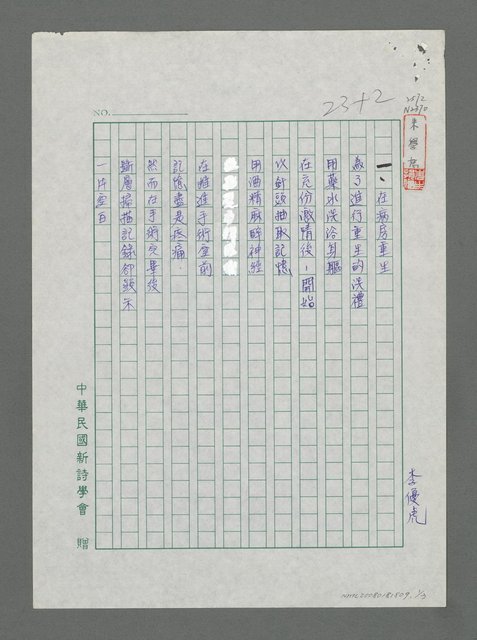 NO.
23+2
朱學恕
李優虎
一、在病房重生
為了進行重生的洗禮
用藥水洗浴身軀
在充份後，開始
以針頭抽取記憶
用酒精麻醉神經
在推進手術室前
記憶盡是疼痛．
然而在手術完畢後
斷層掃描記錄卻顯示
一片空白
中華民國新詩學會 贈
NMTL20080181509, 1/3